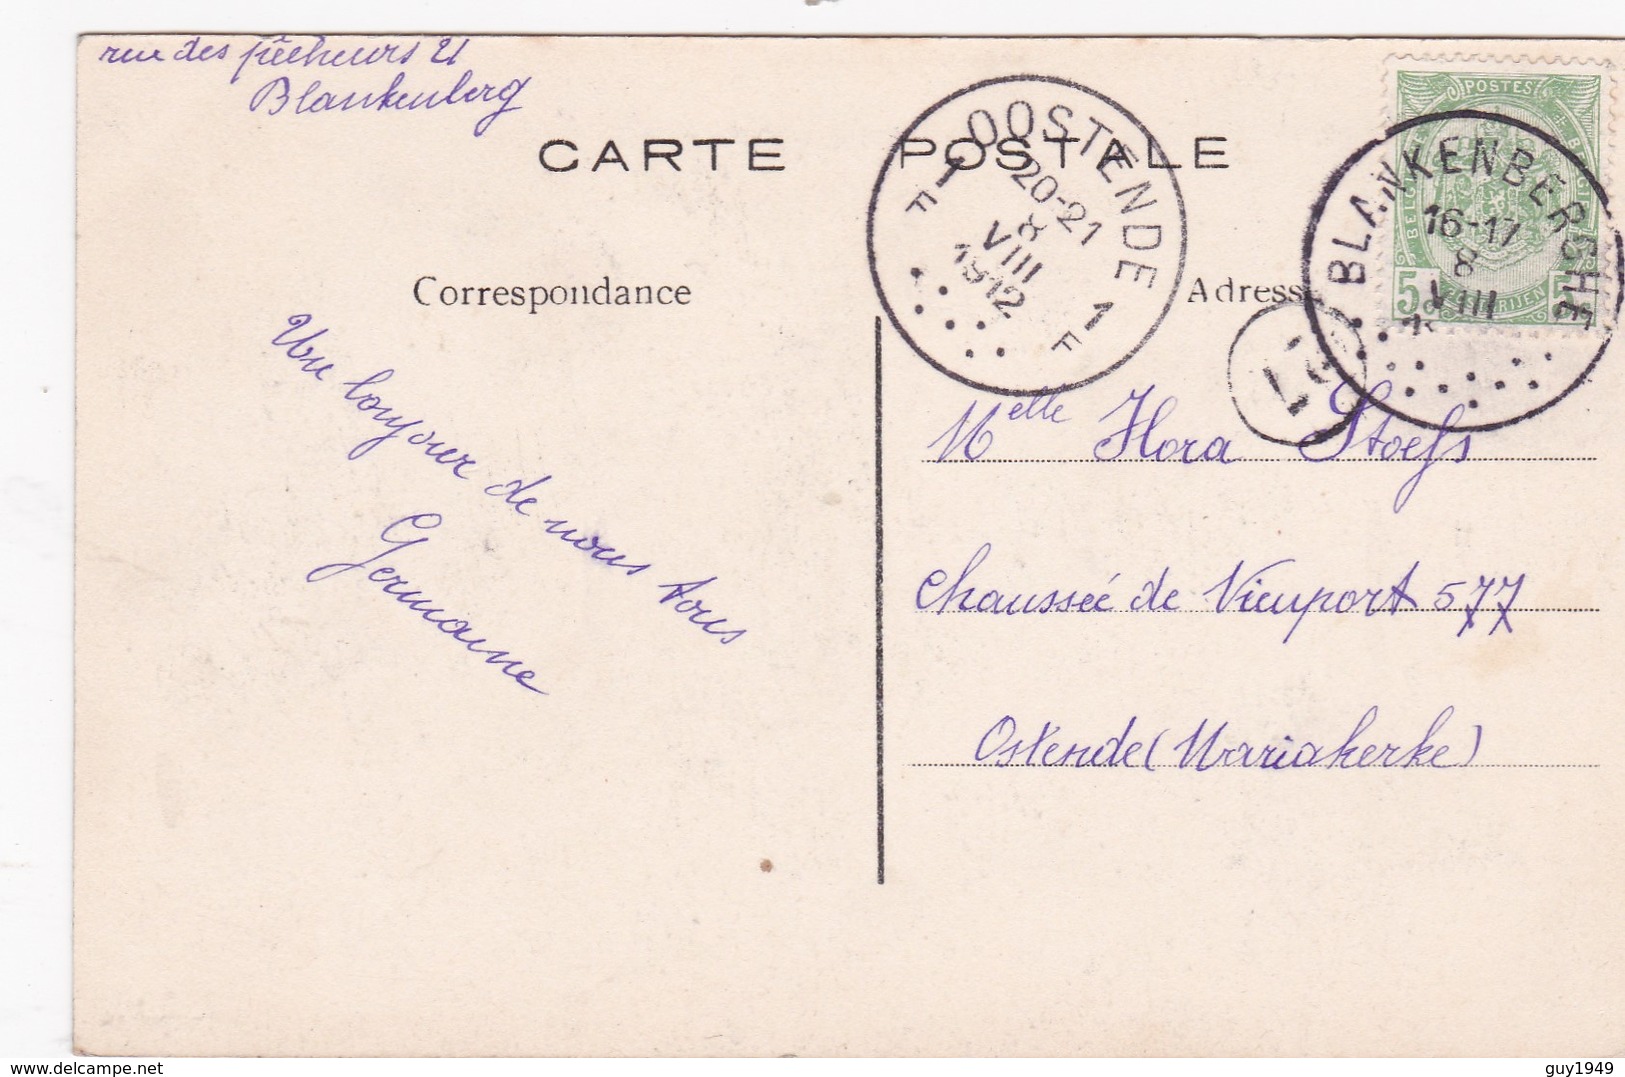 rue des pêcheurs 21
Blankenberg
CARTE POSTALE
OOSTENDE 1
20-21
8
VIII
1912
F F
POSTES
BLANKENBERGHE
16-17
8
VIII
5 5
Correspondance
Adresse
Un bonjour de nous tous
Germaine
Melle Flora Stoefs
Chaussée de Nieuport 577
Ostende (Mariakerke)
guy1949